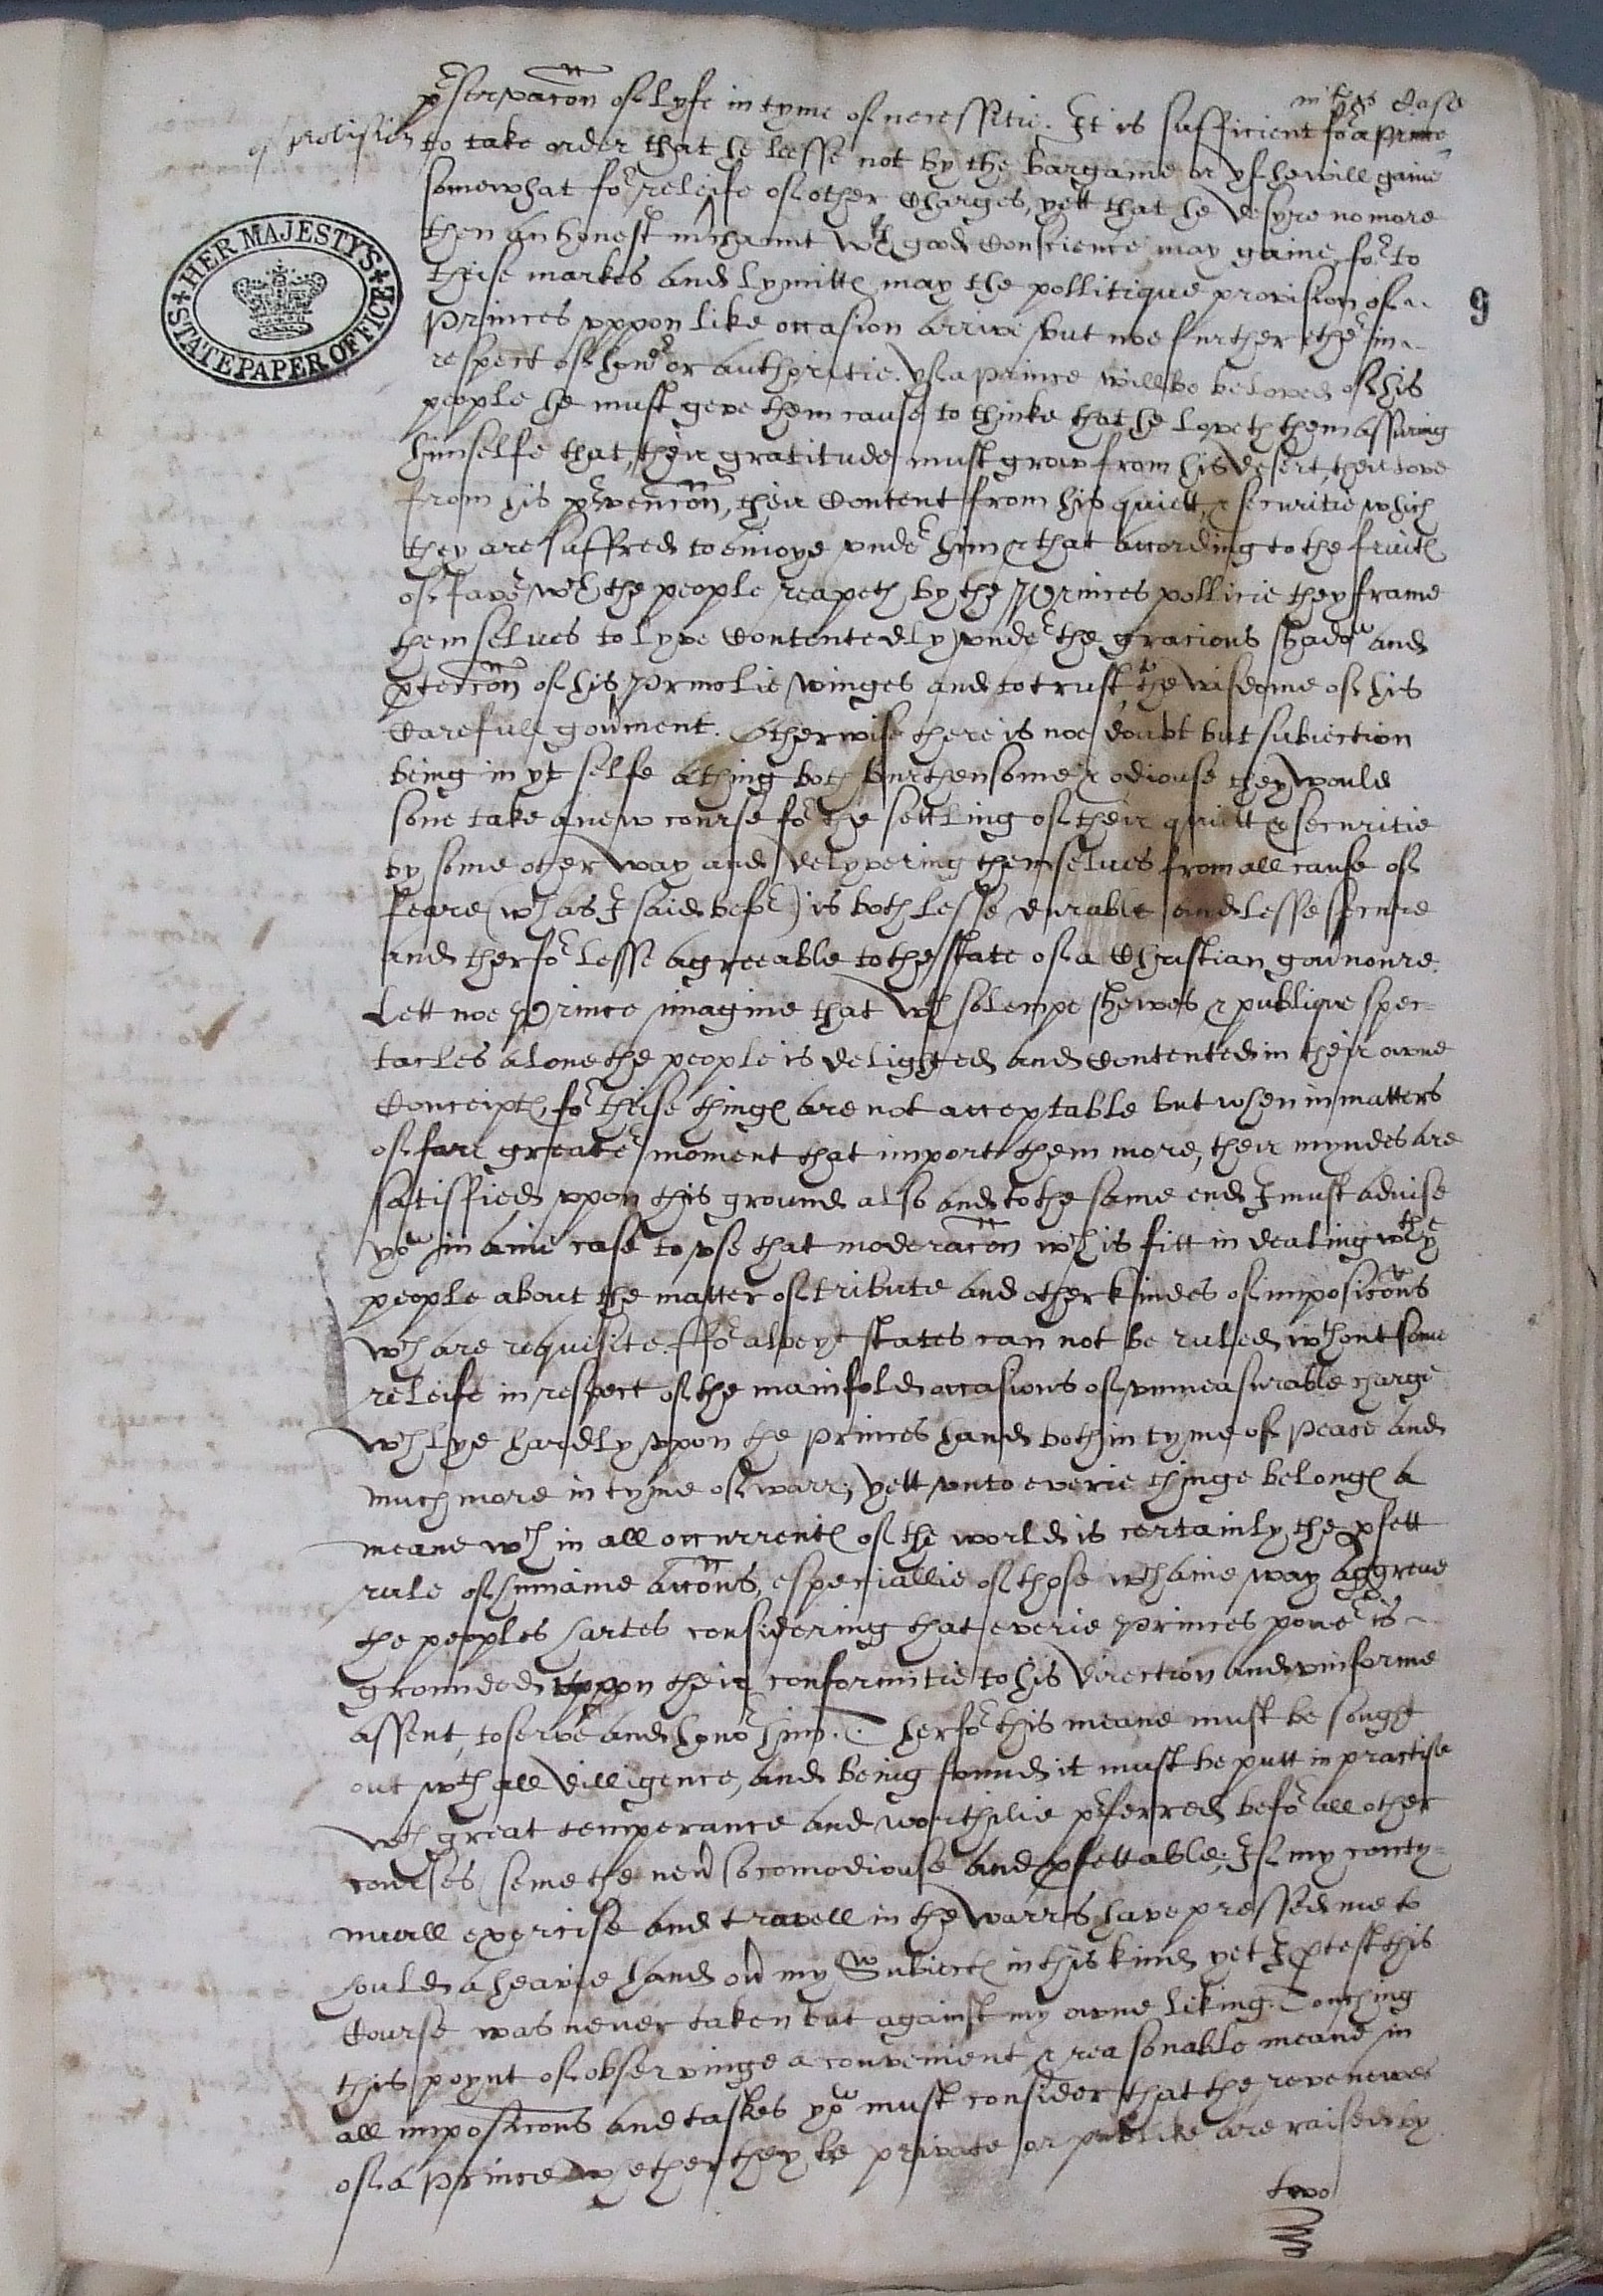 pʳservacōn of lyfe in tyme of necessitie. It is sufficient foʳ a Prince
in this Case
of provision
to take order that he leesse not by the bargaine or yf he will gaine
somewhat foʳ releife of other Charges, yett that he desyre no more
then an honest mʳchaunt wᵗʰ good Conscience may gaine, foʳ to
HER MAJESTY'S
STATE PAPER OFFICE
theise markes and lymittes may the pollitique provision of
9
Princes vppon like occasion arrive but noe further ether in
respect of honoʳ or authoritie. yf a Prince will be beloved of his
people he must geve them cause to thinke that he loveth them assuring
himselfe that their gratitude must grow from his desert, their love
from his pʳvencōn, their Content from his quiett & securitie which
they are suffred to enioye vndeʳ him & that according to the fruites
of favoʳ wᶜʰ the people reapeth by the Princes pollicie they frame
themselves to lyve Contentedly vndeʳ the gracious shadoʷ and
ptectōn of his Princlie winges and to trust to the wisdome of his
Carefull goūment. Otherwise there is noe doubt but subiection
being in yt selfe a thing both burthensome & odiouse they would
sone take a new course foʳ the settling of their quiett & securitie
by some other way and delyvering themselves from all cause of
feare (wᶜʰ as I said befoʳ) is both lesse durable and lesse secure
and therfoʳ lesse agreeable to the state of a Christian gouūnoure.
Lett noe Prince imagine that wᵗʰ solempe shewes & publique spec-
tacles alone the people is delighted and Contented in their owne
Conceiptes, foʳ theise thinges are not acceptable but when in matters
of farr greateʳ moment that import them more, their myndes are
satisfied vpon this ground also and to the same end I must advise
yoᵘ in anie case to vse that moderacōn wᶜʰ is fitt in dealing wᵗʰ yᵉ
people about the matter of tribute and other kindes of imposicōns
wᶜʰ are requisite. ffoʳ albeyt states can not be ruled wᵗʰout some
releife in respect of the manifold occasions of vnmeasurable charge
wᶜʰ lye hardly vppon the princes hand both in tyme of peace and
much more in tyme of warr; yett vnto everie thinge belonges a
meane wᶜʰ in all occurrentes of the world is certainly the pfett
rule of humaine accōns, especiallie of those wᶜʰ anie way aggreve
the peoples hartes considering that everie Princes poweʳ is
grounded vppon their conformitie to his direction and vniforme
assent, to serve and honoʳ him. Therfoʳ this meane must be sought
out wᵗʰ all dilligence, and being found it must be putt in practise
wᵗʰ great temperance and worthilie pʳferred befoʳ all other
courses seme the neuʳ so comodiouse and pfettable; If my conty-
nuall exercise and travell in the warrs have pressed me to
hould a heavie hand ouʳ my Subiectes in this kind yet I ptest this
Course was never taken but against my owne liking. Touching
this poynt of observinge a convenient & reasonable meane in
all imposicōns and taskes yoᵘ must consider that the revenewes
of a Prince whether they be private or publike are raised by
two